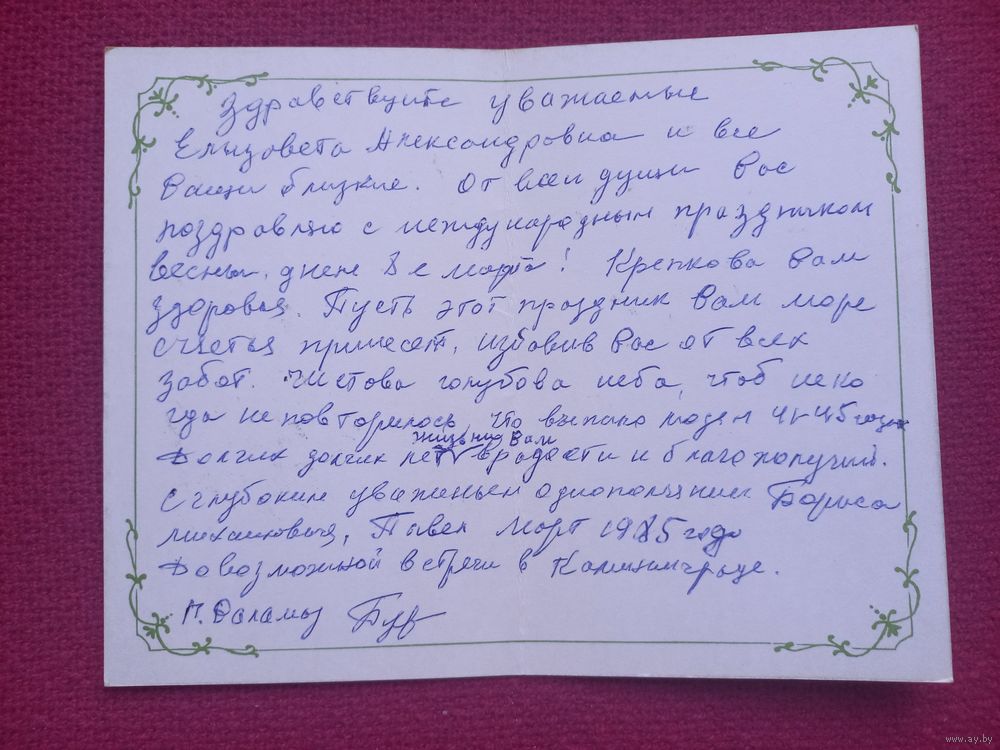 Здравствуйте уважаемые
Елизовета Александровна и все
Ваши близкие. От всей души Вас
поздровляю с международным праздником
весны, днем 8 е марта! Крепкова Вам
здоровья. Пусть этот праздник Вам море
счастья принесет, избавив Вас от всех
забот. Чистова голубова неба, чтоб неко
гда не повторилось, что выпало людям 41-45 годах
жизьни Вам
Долгих долгих лет в радости и благополучий.
С глубоким уваженьем однополчанин Бориса
Михайловича, Павел Март 1985 года
До возможной встречи в Калининграде.
П.
www.ay.by